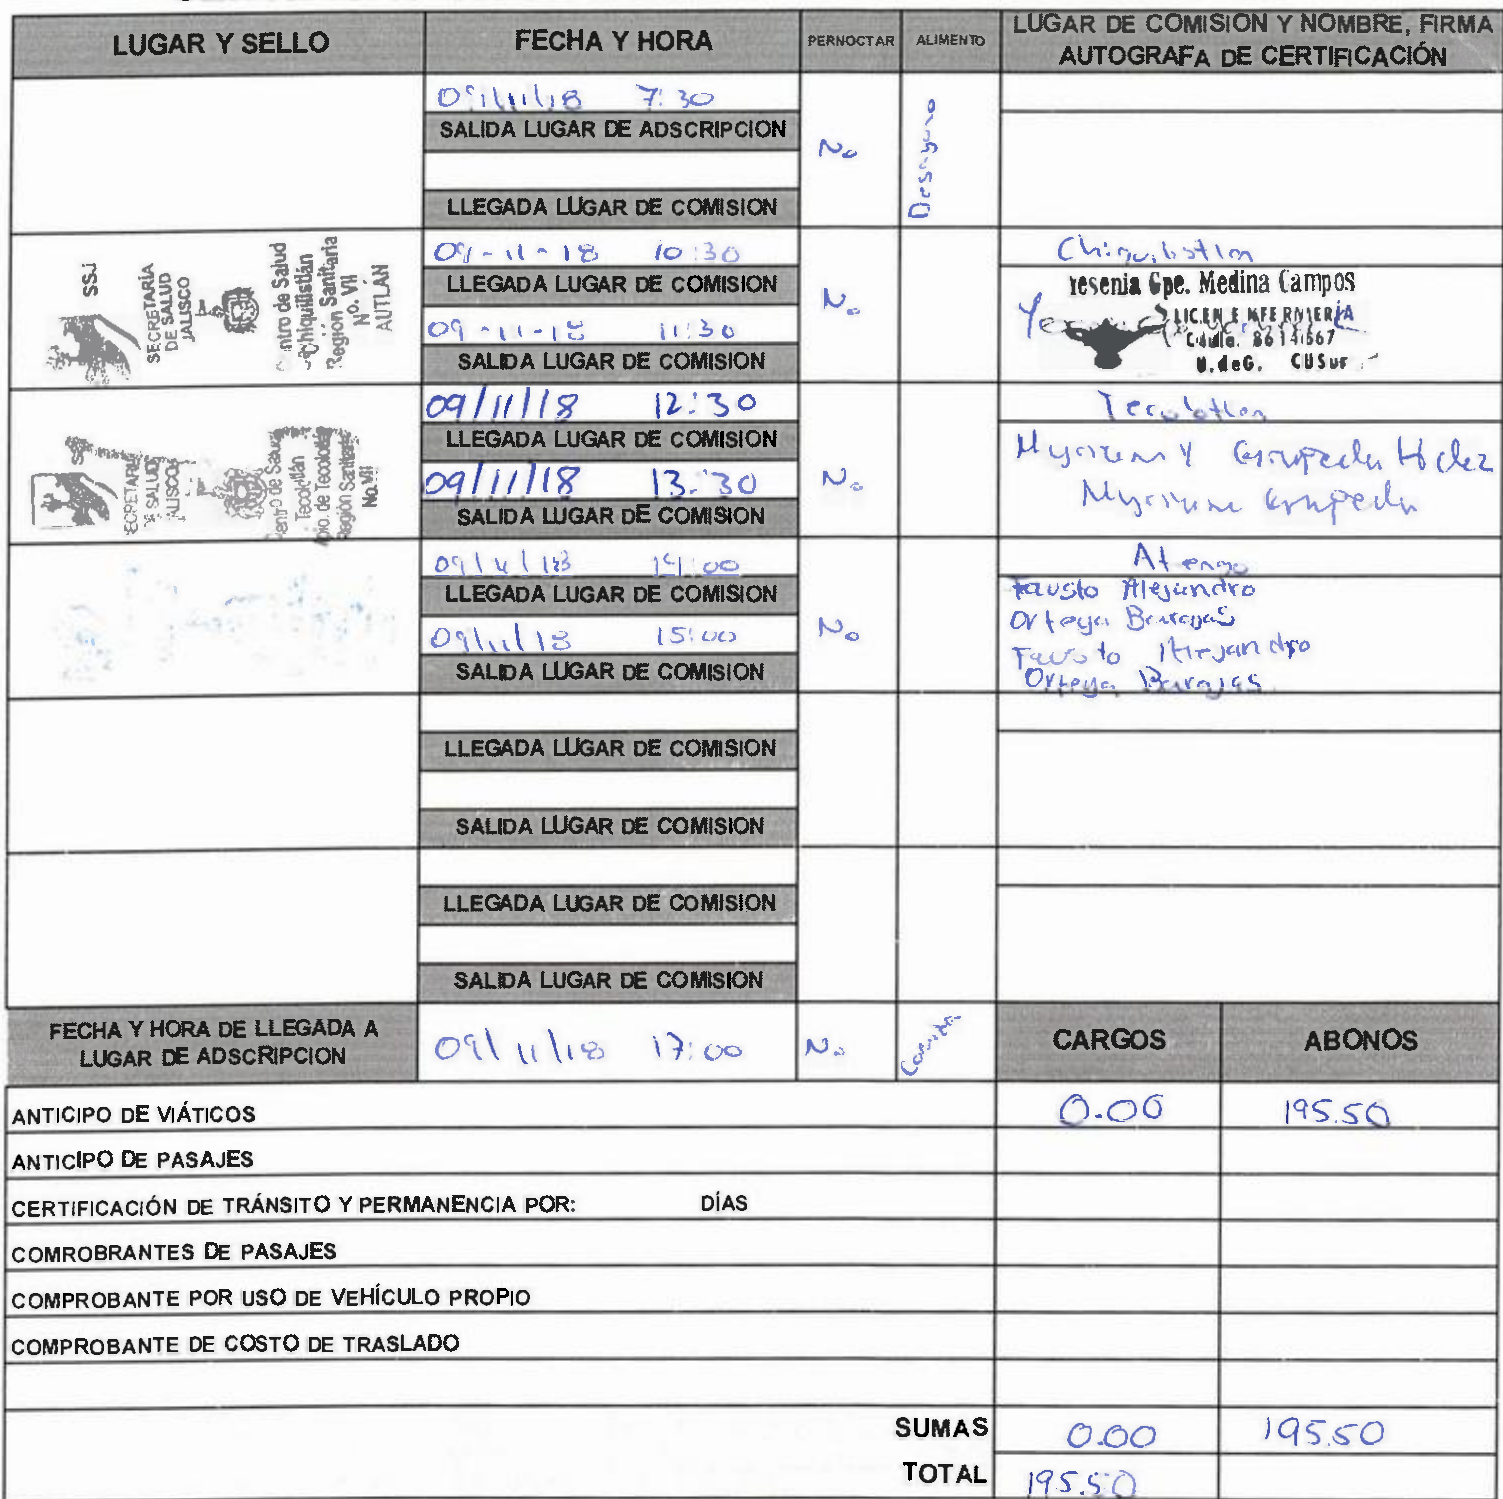 LUGAR Y SELLO
FECHA Y HORA
PERNOCTAR
ALIMENTO
LUGAR DE COMISION Y NOMBRE, FIRMA
AUTOGRAFA DE CERTIFICACIÓN
09/11/18 7:30
SALIDA LUGAR DE ADSCRIPCION
No
Desayuno
LLEGADA LUGAR DE COMISION
SSJ
SECRETARÍA
DE SALUD
JALISCO
Centro de Salud
Chiquilistlán
Región Sanitaria
No. VII
AUTLÁN
09-11-18 10:30
LLEGADA LUGAR DE COMISION
09-11-18 11:30
SALIDA LUGAR DE COMISION
No
Chiquilistlan
Yesenia Gpe. Medina Campos
LIC. EN ENFERMERÍA
Cédula. 8614667
U.deG. CUSur
SECRETARÍA
DE SALUD
JALISCO
Centro de Salud
Tecolotlán
Mpio. de Tecolotlán
Región Sanitaria
No. VII
09/11/18 12:30
LLEGADA LUGAR DE COMISION
09/11/18 13:30
SALIDA LUGAR DE COMISION
No
Tecolotlan
09/11/18 14:00
LLEGADA LUGAR DE COMISION
09/11/18 15:00
SALIDA LUGAR DE COMISION
No
Atengo
Fausto Alejandro
Ortega Barajas
Fausto Alejandro
Ortega Barajas
LLEGADA LUGAR DE COMISION
SALIDA LUGAR DE COMISION
LLEGADA LUGAR DE COMISION
SALIDA LUGAR DE COMISION
FECHA Y HORA DE LLEGADA A
LUGAR DE ADSCRIPCION
09/11/18 17:00
No
Comida
CARGOS
ABONOS
ANTICIPO DE VIÁTICOS 0.00 195.50
ANTICIPO DE PASAJES
CERTIFICACIÓN DE TRÁNSITO Y PERMANENCIA POR: DÍAS
COMROBRANTES DE PASAJES
COMPROBANTE POR USO DE VEHÍCULO PROPIO
COMPROBANTE DE COSTO DE TRASLADO
SUMAS 0.00 195.50
TOTAL 195.50